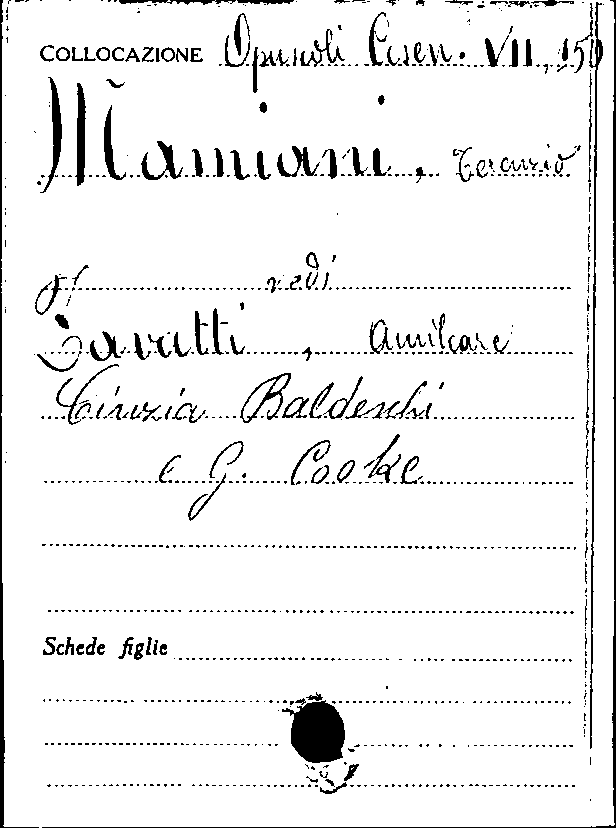 COLLOCAZIONE Opuscoli Cesen. VII, 150
Mamiani, Terenzio
vedi
Zavatti, Amilcare
Cinzia Baldeschi
e G. Cooke
Schede figlie